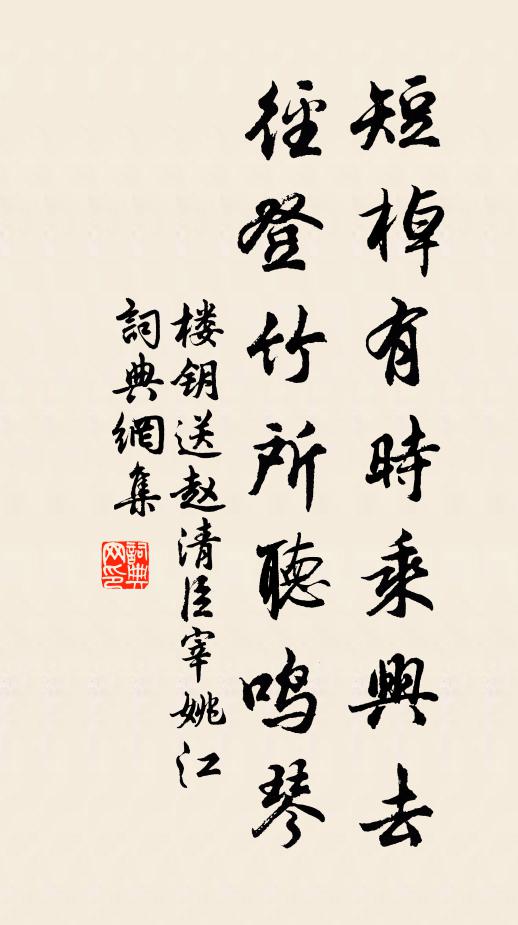 短棹有時乘興去
徑登竹所聽鸣琴
楼钥送赵清臣宰姚江
詞典網集
詞典
网印